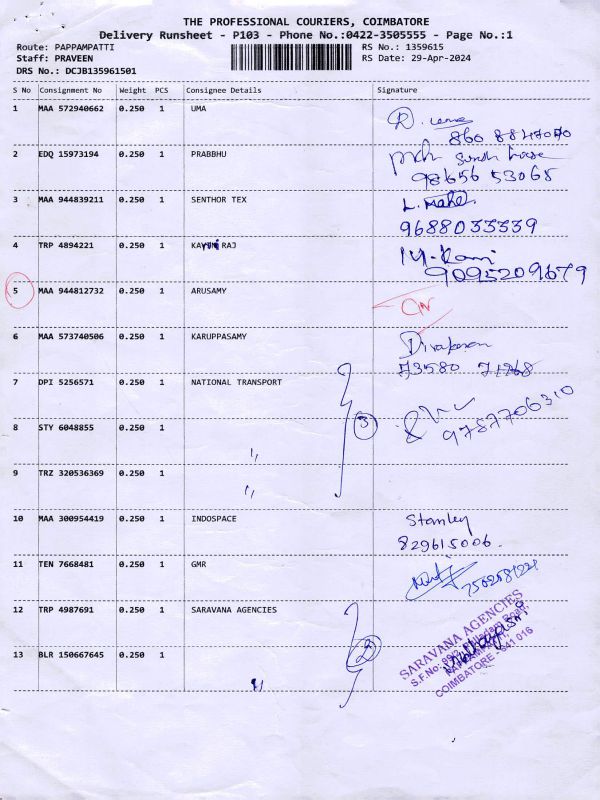 THE PROFESSIONAL COURIERS, COIMBATORE
Delivery Runsheet - P103 - Phone No.:0422-3505555 - Page No.:1
Route: PAPPAMPATTI RS No.: 1359615
Staff: PRAVEEN RS Date: 29-Apr-2024
DRS No.: DCJB135961501
S No Consignment No Weight PCS Consignee Details Signature
1 MAA 572940662 0.250 1 UMA
2 EDQ 15973194 0.250 1 PRABBHU
98656 53068
3 MAA 944839211 0.250 1 SENTHOR TEX
9688033339
4 TRP 4894221 0.250 1 RAJ
9095209679
5 MAA 944812732 0.250 1 ARUSAMY
6 MAA 573740506 0.250 1 KARUPPASAMY
73580
7 DPI 5256571 0.250 1 NATIONAL TRANSPORT
3
9787706310
8 STY 6048855 0.250 1
9 TRZ 320536369 0.250 1
10 MAA 300954419 0.250 1 INDOSPACE Stanley
829615006.
11 TEN 7668481 0.250 1 GMR
12 TRP 4987691 0.250 1 SARAVANA AGENCIES
2
13 BLR 150667645 0.250 1
SARAVANA AGENCIES
S.F.No:
COIMBATORE - 641 016